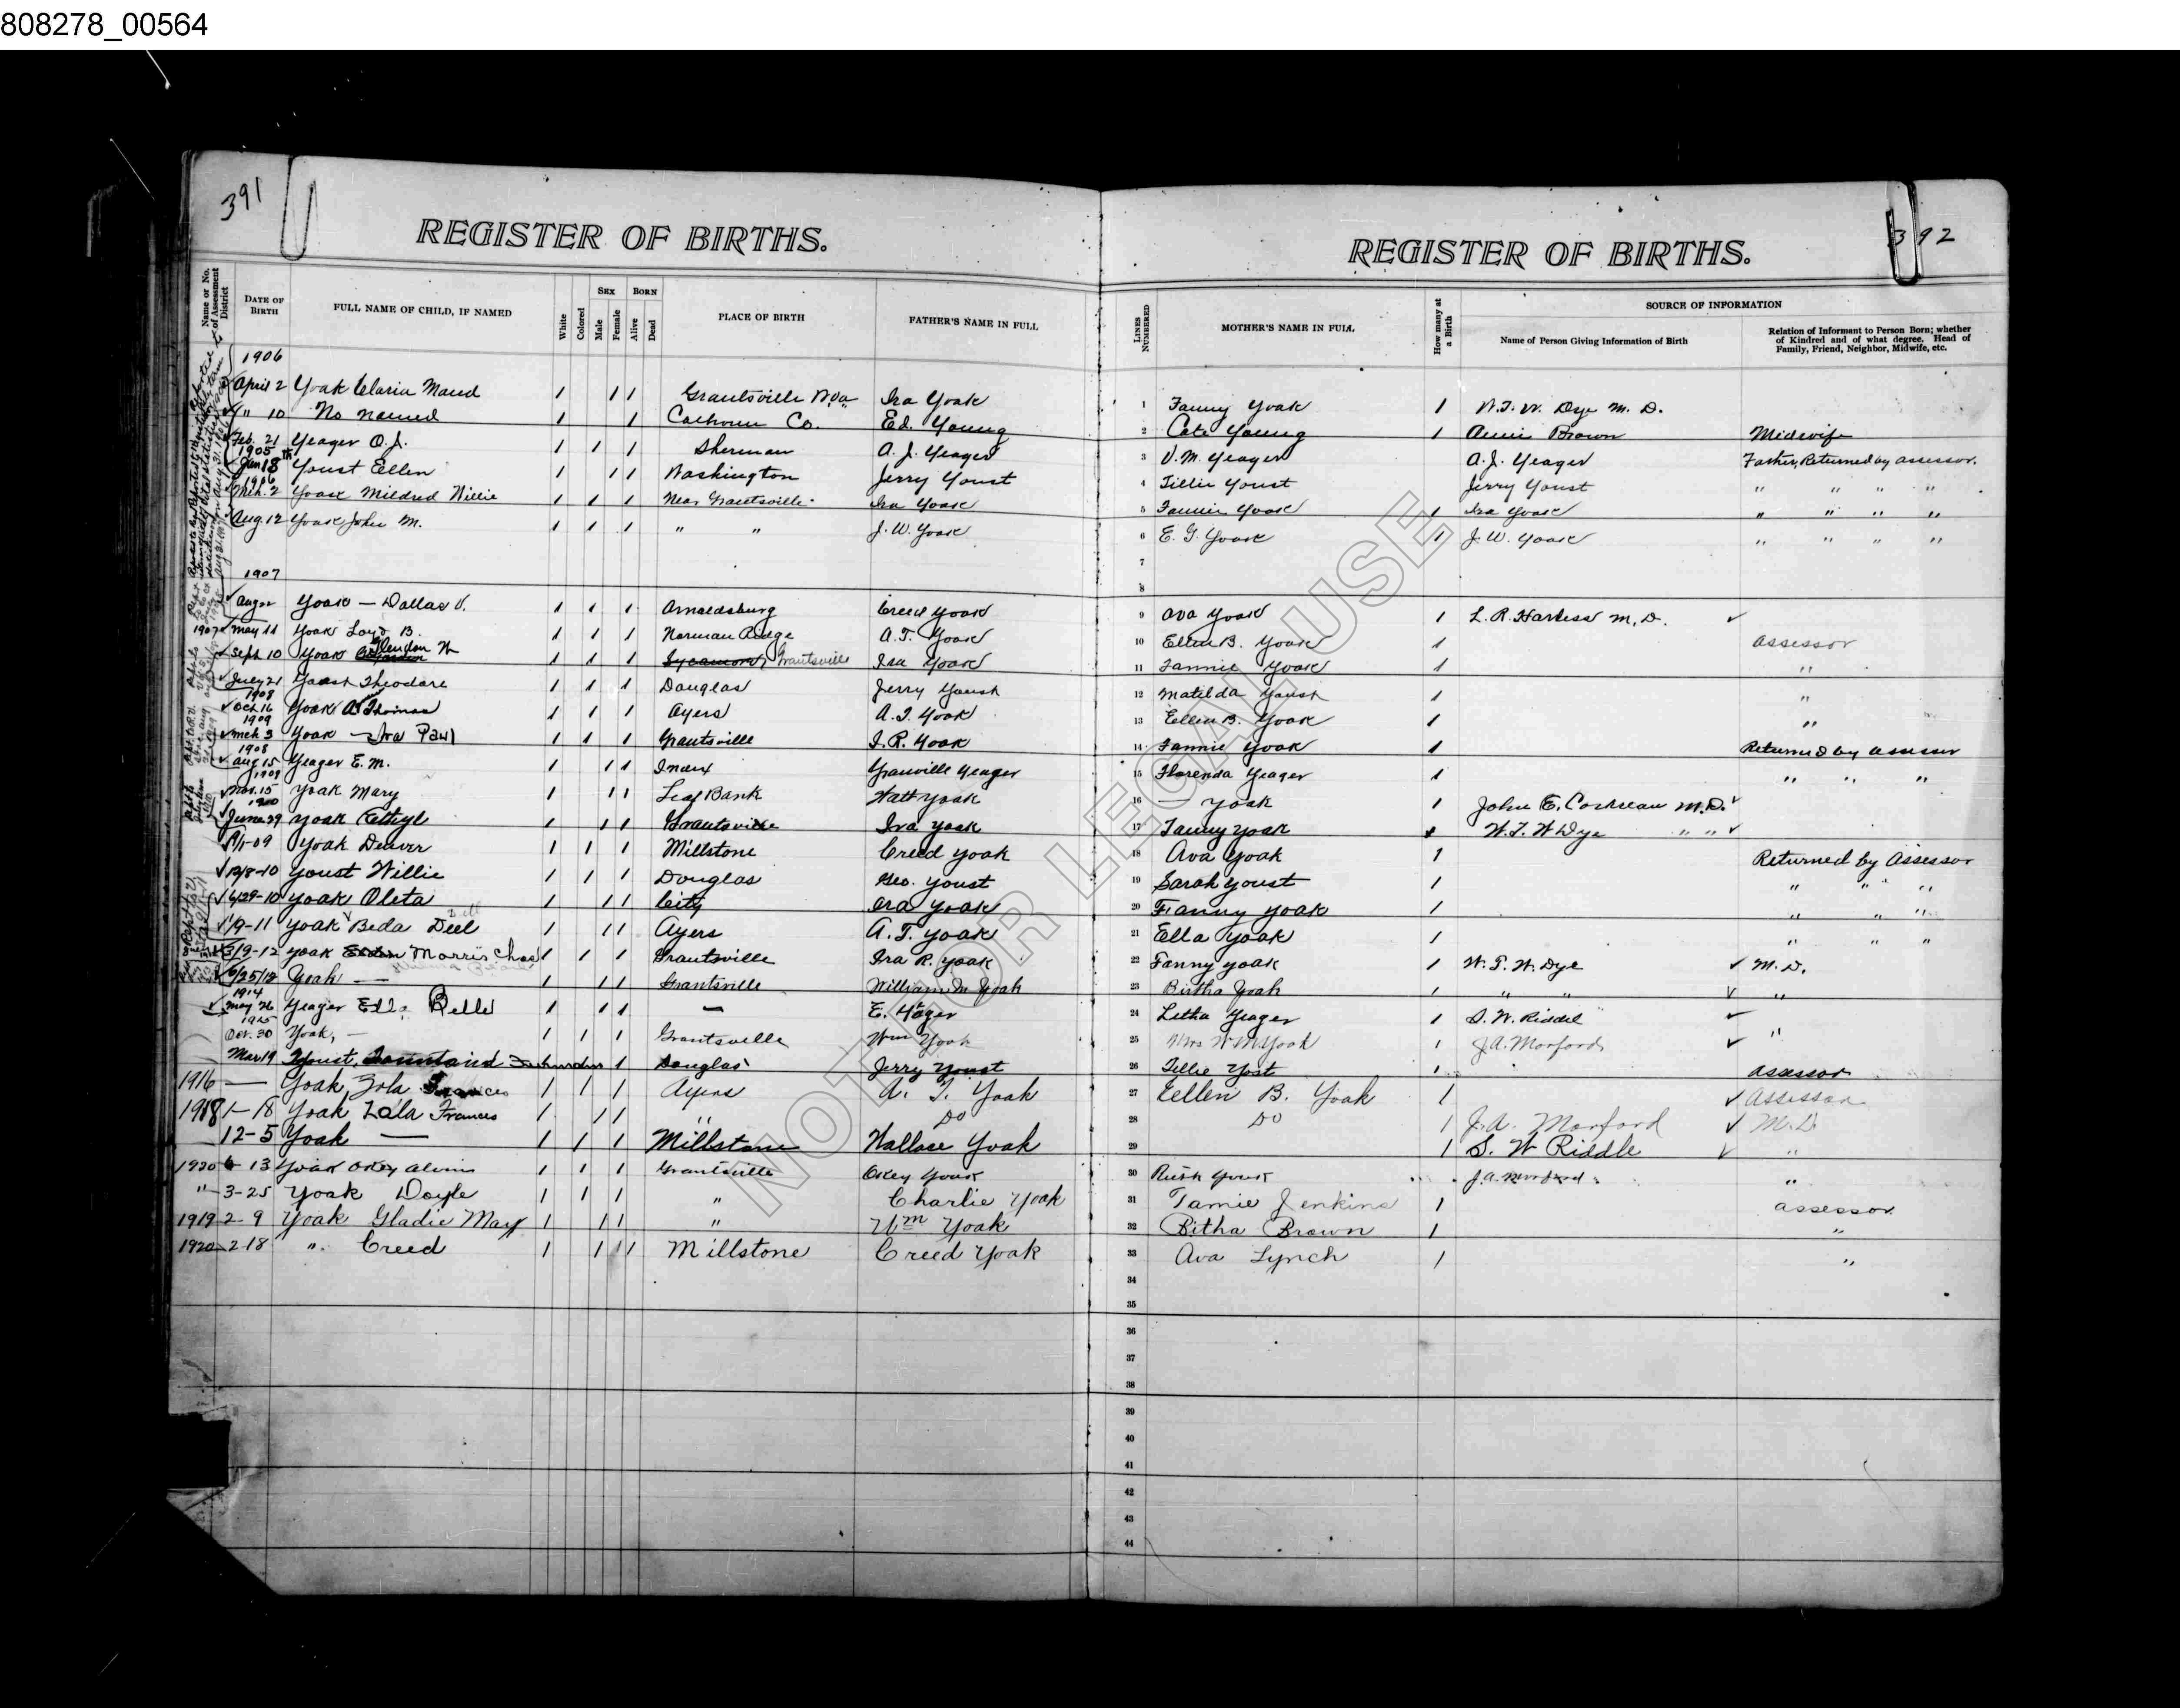 808278_00564
391
REGISTER OF BIRTHS.
Name or No. of Assessment District
DATE OF BIRTH
FULL NAME OF CHILD, IF NAMED
White
Colored
SEX
Male
Female
BORN
Alive
Dead
PLACE OF BIRTH
FATHER'S NAME IN FULL
1906
April 2 Yoak Claria Maud 1 1 1 Grantsville W.Va. Ira Yoak
" 10 No named 1 1 Calhoun Co. Ed. Young
Feb. 21 Yeager O.J. 1 1 1 Sherman A. J. Yeager
1905
Jan 18th Youst Ellen 1 1 1 Washington Jerry Youst
1906
Mch. 2 Yoak Mildred Willie 1 1 1 Near Grantsville Ira Yoak
Aug. 12 Yoak John M. 1 1 1 " " J. W. Yoak
1907
Aug 22 Yoak — Dallas V. 1 1 1 Arnoldsburg Creed Yoak
1907 May 11 Yoak Loyd B. 1 1 1 Norman Ridge A. T. Yoak
Sept 10 Yoak Glendon W 1 1 1 Sycamore, Grantsville Ira Yoak
July 21 Youst Theodore 1 1 1 Douglas Jerry Youst
1908
Oct. 16 Yoak A Thomas 1 1 1 Ayers A. T. Yoak
1909
Mch 3 Yoak — Ira Paul 1 1 1 Grantsville I. R. Yoak
1908
Aug 15 Yeager E. M. 1 1 1 Index Granville Yeager
1909
Nov. 15 Yoak Mary 1 1 1 Leaf Bank Watt Yoak
June 29 Yoak 1 1 1 Grantsville Ira Yoak
Yoak Denver 1 1 1 Millstone Creed Yoak
12/8-10 Youst Willie 1 1 1 Douglas Geo. Youst
6/29-10 Yoak Oleta 1 1 1 City Ira Yoak
1/9-11 Yoak Beda Dell 1 1 1 Ayers A. T. Yoak
3/9-12 Yoak Morris Chas 1 1 1 Grantsville Ira R. Yoak
6/25/12 Yoak — 1 1 1 Grantsville William M Yoak
1914
May 26 Yeager Ella Belle 1 1 1 — E. Yager
1915
Oct. 30 Yoak, — 1 1 1 Grantsville Wm Yoak
Mar 19 Youst, 1 1 Douglas Jerry Youst
1916 — Yoak, Zola Frances 1 1 1 Ayers A. T. Yoak
1918 1-18 Yoak, Lola Frances 1 1 1 " DO
12-5 Yoak — 1 1 1 Millstone Wallace Yoak
1920 6-13 Yoak Okey Alvin 1 1 1 Grantsville Okey Yoak
" 3-25 Yoak Doyle 1 1 1 " Charlie Yoak
1919 2-9 Yoak Gladie May 1 1 1 " Wm Yoak
1920 2-18 " Creed 1 1 1 1 Millstone Creed Yoak
392
REGISTER OF BIRTHS.
LINES NUMBERED
MOTHER'S NAME IN FULL
How many at a Birth
SOURCE OF INFORMATION
Name of Person Giving Information of Birth
Relation of Informant to Person Born; whether of Kindred and of what degree. Head of Family, Friend, Neighbor, Midwife, etc.
1 Fanny Yoak 1 W. T. W. Dye M. D.
2 Cate Young 1 Annie Brown Midwife
3 V. M. Yeager A. J. Yeager Father, Returned by assessor.
4 Tillie Youst Jerry Youst " " " "
5 Fannie Yoak 1 Ira Yoak " " " "
6 E. G. Yoak 1 J. W. Yoak " " " "
7
8
9 Ava Yoak 1 L. R. Harless M. D.
10 Ellen B. Yoak 1 assessor
11 Fannie Yoak 1 "
12 Matilda Youst 1 "
13 Ellen B. Yoak 1 "
14 Fannie Yoak 1 Returned by assessor
15 Florenda Yeager 1 " " "
16 — Yoak 1 John E. Cochran M.D.
17 Fanny Yoak 1 W. T. W Dye " "
18 Ava Yoak 1 Returned by Assessor
19 Sarah Youst 1 " " "
20 Fanny Yoak 1 " " "
21 Ella Yoak 1 " " "
22 Fanny Yoak 1 W. T. W. Dye M. D.
23 Birtha Yoak 1 " " "
24 Letha Yeager 1 S. W. Riddel "
25 Mrs W M Yoak 1 J. A. Morford "
26 Tillie Yost 1 assessor
27 Eellen B. Yoak 1 Assessor
28 DO 1 J. A. Morford M. D.
29 1 S. W Riddle "
30 Ruth Yoak J. A. Morford "
31 Tamie Jenkins 1 assessor
32 Bitha Brown 1 "
33 Ava Lynch 1 "
34
35
36
37
38
39
40
41
42
43
44
NOT FOR LEGAL USE